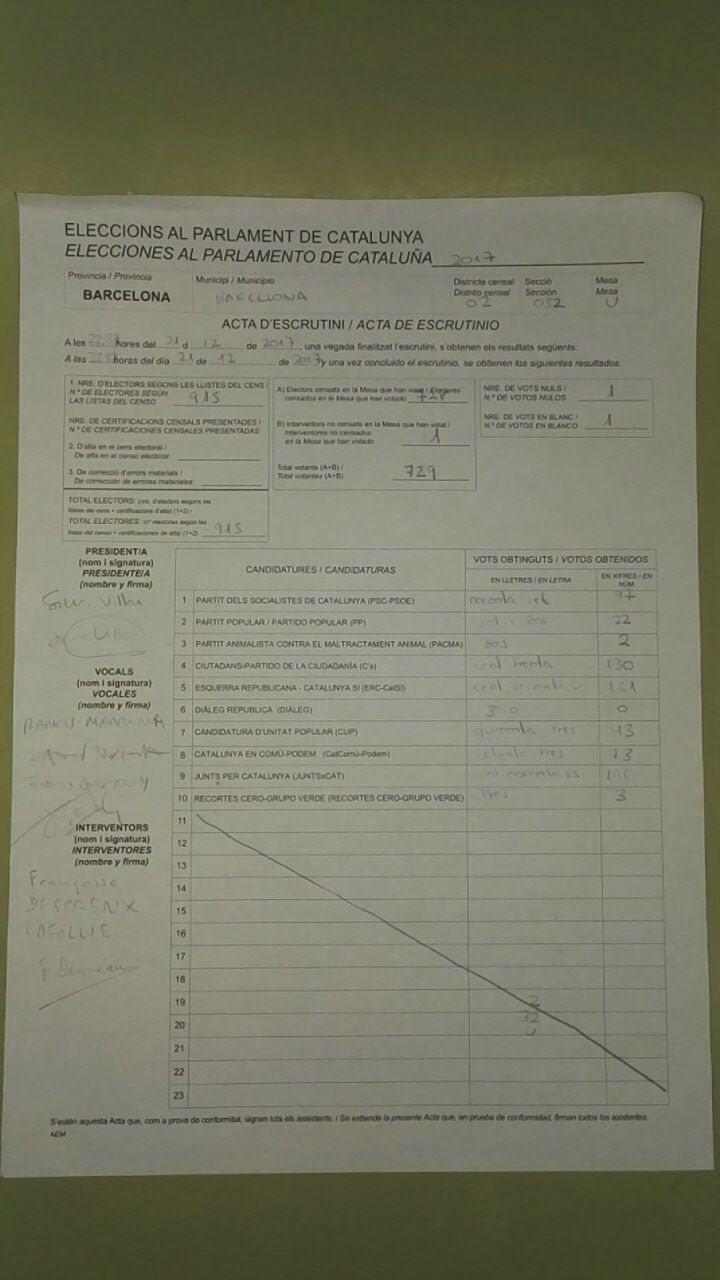 ELECCIONS AL PARLAMENT DE CATALUNYA
ELECCIONES AL PARLAMENTO DE CATALUÑA 2017
Província / Provincia
BARCELONA
Municipi / Municipio
BARCELONA
Districte censal Secció Mesa
Distrito censal Sección Mesa
02 032 U
ACTA D'ESCRUTINI / ACTA DE ESCRUTINIO
A les hores del 21 d 12 de 2017, una vegada finalitzat l'escrutini, s'obtenen els resultats següents:
A las horas del día 21 de 12 de 2017 y una vez concluido el escrutinio, se obtienen los siguientes resultados.
1. NRE. D'ELECTORS SEGONS LES LLISTES DEL CENS /
N.º DE ELECTORES SEGÚN
LAS LISTAS DEL CENSO 915
NRE. DE CERTIFICACIONS CENSALS PRESENTADES /
N.º DE CERTIFICACIONES CENSALES PRESENTADAS
2. D'alta en el cens electoral /
De alta en el censo electoral:
3. De correcció d'errors materials /
De corrección de errores materiales:
TOTAL ELECTORS: (nre. d'electors segons les
llistes del cens + certificacions d'alta) (1+2) /
TOTAL ELECTORES: (nº electores según las
listas del censo + certificaciones de alta) (1+2) 915
A) Electors censats en la Mesa que han votat / Electores
censados en la Mesa que han votado 728
B) Interventors no censats en la Mesa que han votat /
Interventores no censados
en la Mesa que han votado 1
Total votants (A+B) /
Total votantes (A+B) 729
NRE. DE VOTS NULS /
N.º DE VOTOS NULOS 1
NRE. DE VOTS EN BLANC /
N.º DE VOTOS EN BLANCO 1
PRESIDENT/A
(nom i signatura)
PRESIDENTE/A
(nombre y firma)
VOCALS
(nom i signatura)
VOCALES
(nombre y firma)
INTERVENTORS
(nom i signatura)
INTERVENTORES
(nombre y firma)
DESPREAUX
CANDIDATURES / CANDIDATURAS
VOTS OBTINGUTS / VOTOS OBTENIDOS
EN LLETRES / EN LETRA
EN XIFRES / EN NÚM
1 PARTIT DELS SOCIALISTES DE CATALUNYA (PSC-PSOE) 97
2 PARTIT POPULAR / PARTIDO POPULAR (PP) 22
3 PARTIT ANIMALISTA CONTRA EL MALTRACTAMENT ANIMAL (PACMA) dos 2
4 CIUTADANS-PARTIDO DE LA CIUDADANÍA (C's) cent trenta 130
5 ESQUERRA REPUBLICANA - CATALUNYA SI (ERC-CatSÍ)
6 DIÀLEG REPUBLICÀ (DIÀLEG) 0
7 CANDIDATURA D'UNITAT POPULAR (CUP) quaranta tres 43
8 CATALUNYA EN COMÚ-PODEM (CatComú-Podem) tres
9 JUNTS PER CATALUNYA (JUNTSxCAT)
10 RECORTES CERO-GRUPO VERDE (RECORTES CERO-GRUPO VERDE) tres 3
11
12
13
14
15
16
17
18
19 2
20 32
U
21
22
23
S'estén aquesta Acta que, com a prova de conformitat, signen tots els assistents. / Se extiende la presente Acta que, en prueba de conformidad, firman todos los asistentes.
AEM